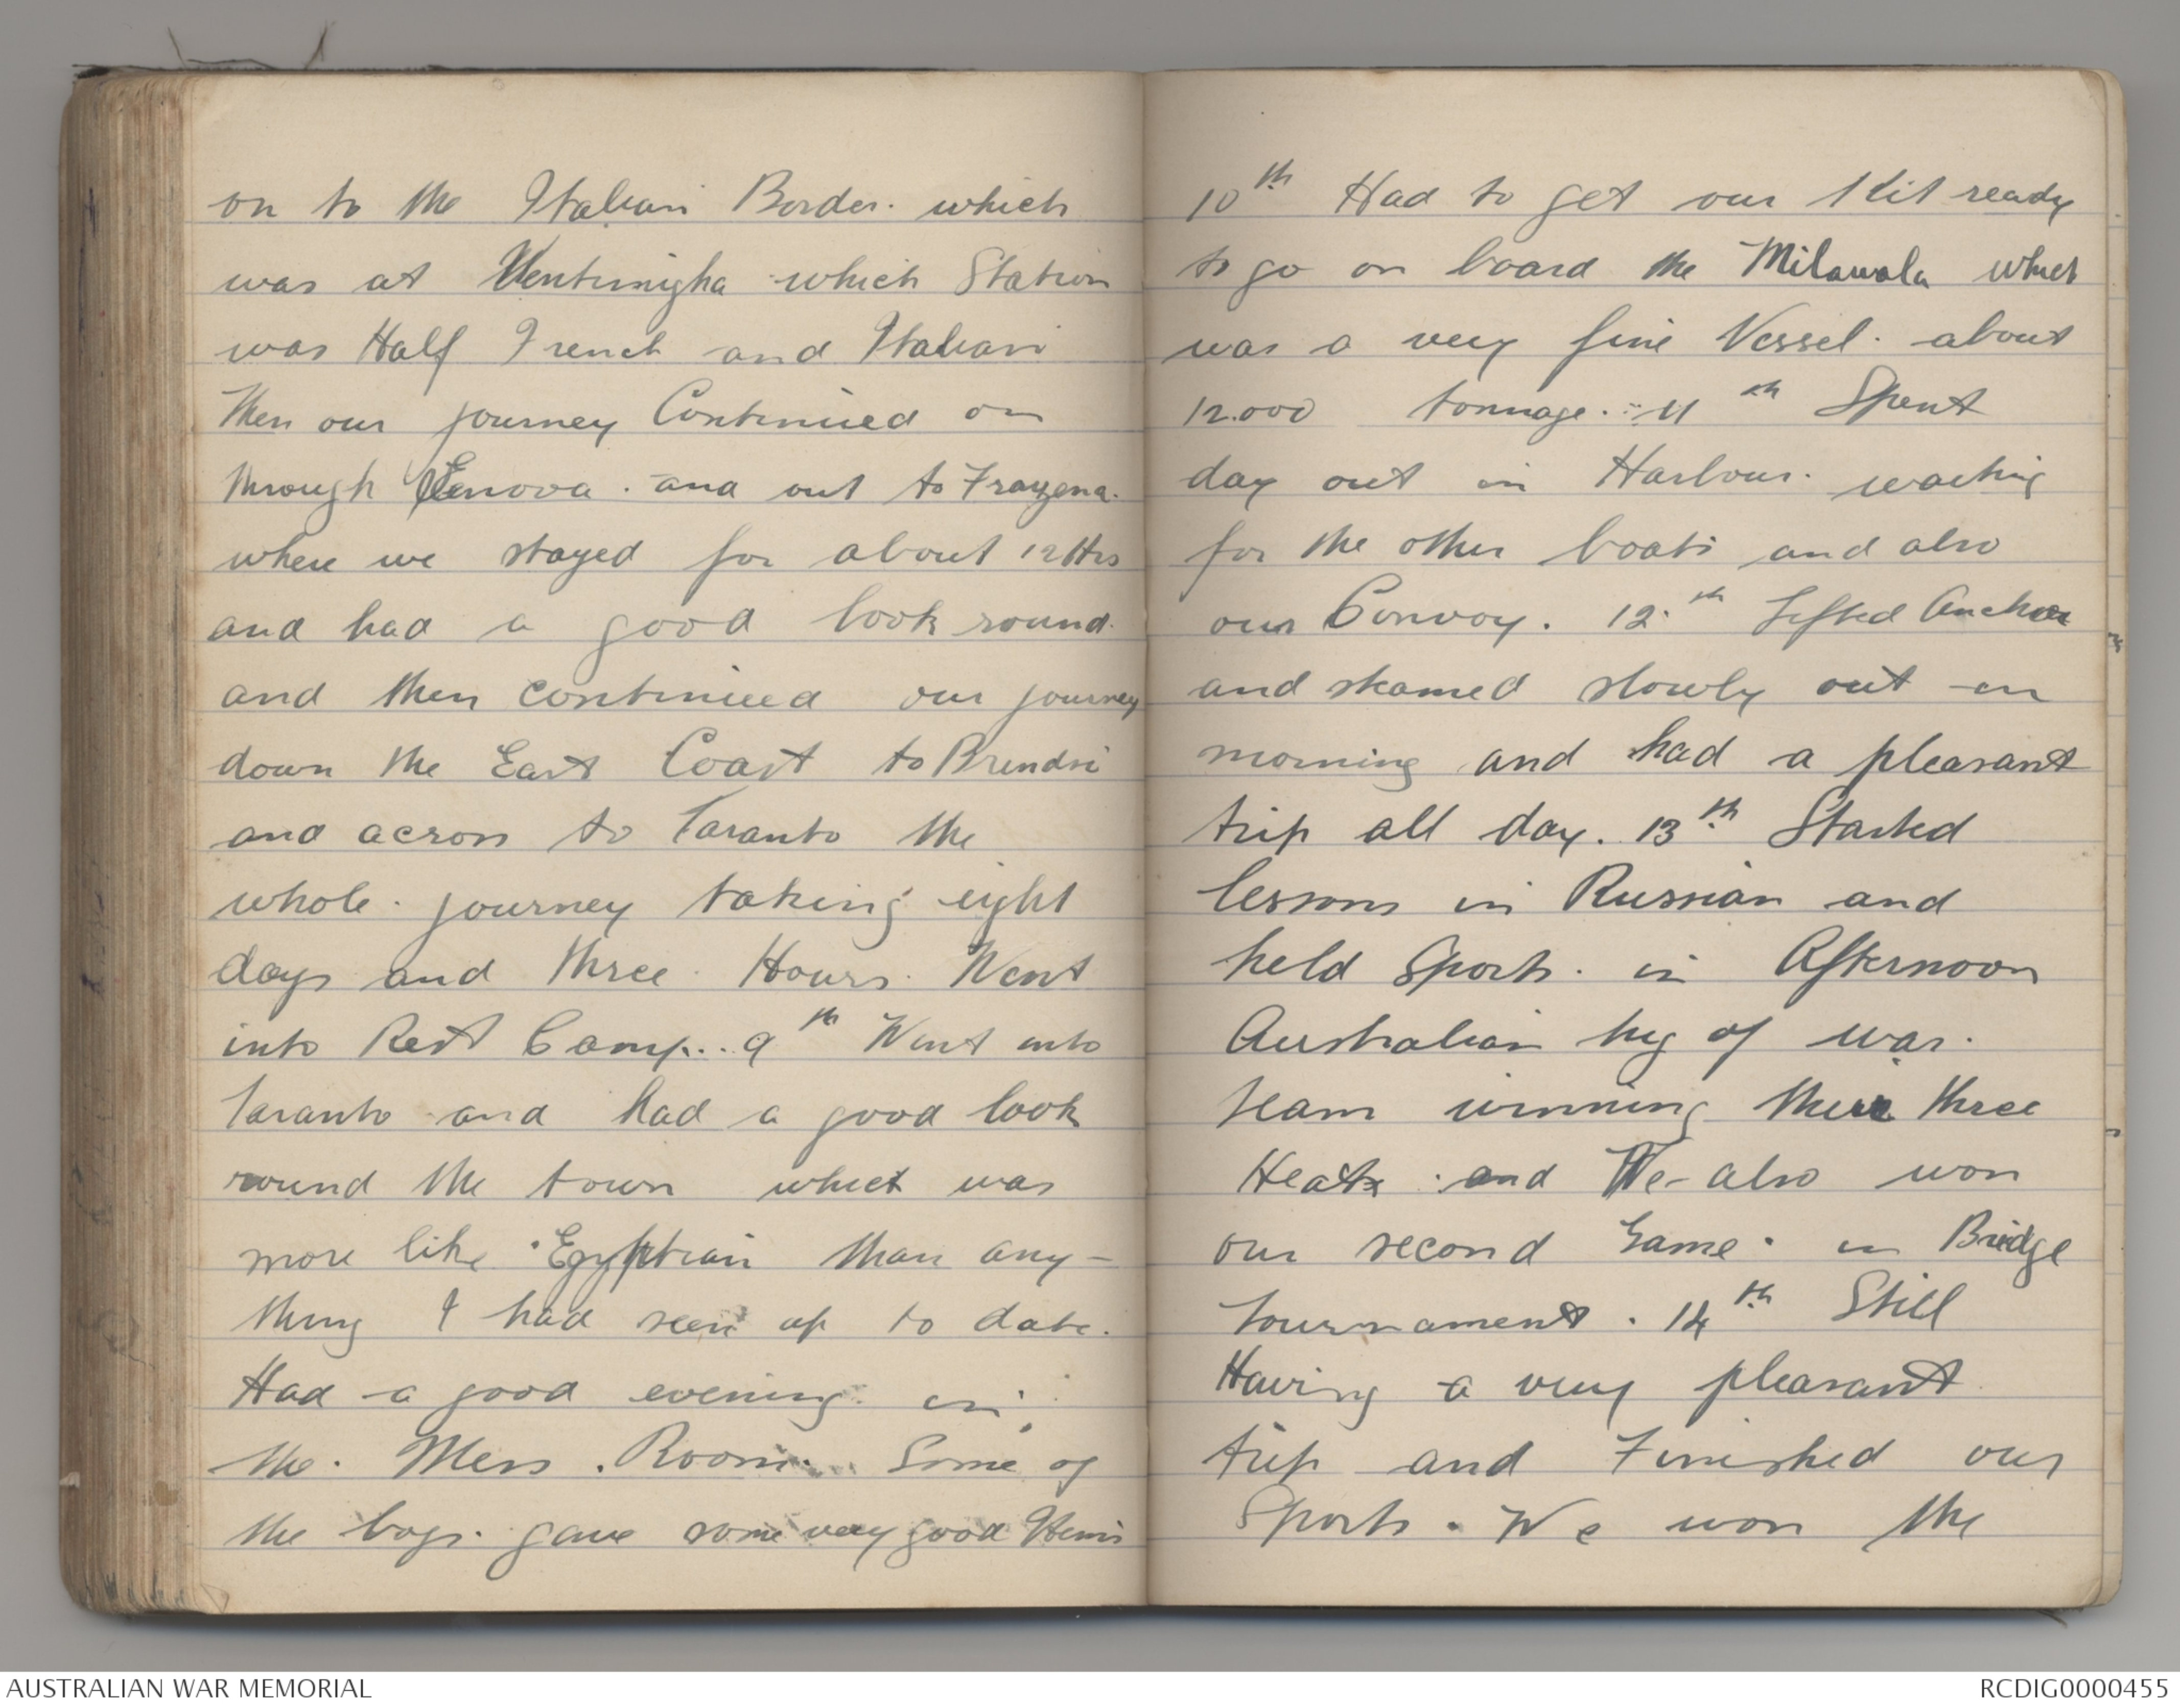 on to the Italian Border. which
was at Ventimigha which Station
was Half French and Italian
Then our journey Continued on
through Genova. and out to Frayena.
where we stayed for about 12 Hrs
and had a good look round.
and then continued our journey
down the East Coast to Brindsi
and across to Taranto the
whole. journey taking eight
days and three Hours. Went
into Rest Camp.. 9th Went into
Taranto and had a good look
round the town which was
more like Egyptian than any-
thing I had seen up to date.
Had a good evening in
the. Mess. Room. Some of
the boys. gave some very good Items
10th Had to get our Kit ready
to go on board the Milawala which
was a very fine Vessel. about
12.000 tonnage. 11th Spent
day out in Harbour. waiting
for the other boats and also
our Convoy. 12th Lifted Anchor
and steamed slowly out in
morning and had a pleasant
trip all day. 13th Started
lessons in Russian and
held Sports. in Afternoon
Australian tug of war.
team winning there three
Heats. and We also won
our second Game. in Bridge
tournament. 14th Still
Having a very pleasant
trip and Finished our
Sports. We won the
AUSTRALIAN WAR MEMORIAL
RCDIG0000455